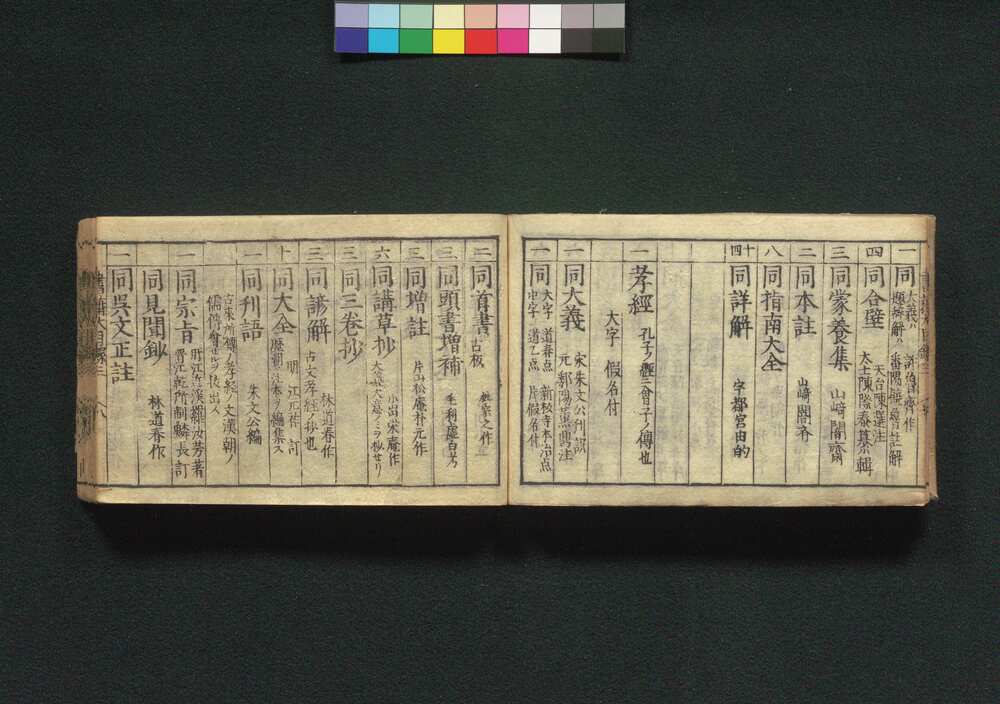 一 同 大義ハ 許魯齋作
題辞解ハ 番陽 註解
四 同合璧 天台陳選注
太士陳際泰纂輯
三 同蒙養集 山崎闇齋
二 同本註 山崎闇斉
八 同指南大全
十四 同詳解 宇都宮由的
一 孝經 孔子ノ 曾子ノ傳也
大字 假名付
一 同大義 宋朱文公刊誤
元鄱陽董鼎注
一 同 大字 道春点 新板寺本冶点
中字 道乙点 片假名付
二 同首書 古板
三 同頭書増補 毛利虚白
三 同増註 片山松庵朴元作
六 同講草抄 小出宗庵作
三 同三卷抄
三 同諺解 林道春作
古文孝經ノ抄也
十 同大全 明 江元祚 訂
一 同刊語 朱文公編
古来所傳ノ孝經ノ文漢朝ノ
儒
一 同宗旨 盱江 羅汝芳著
晋江乾所制麟長訂
同見聞鈔 林道春作
一 同呉文正註